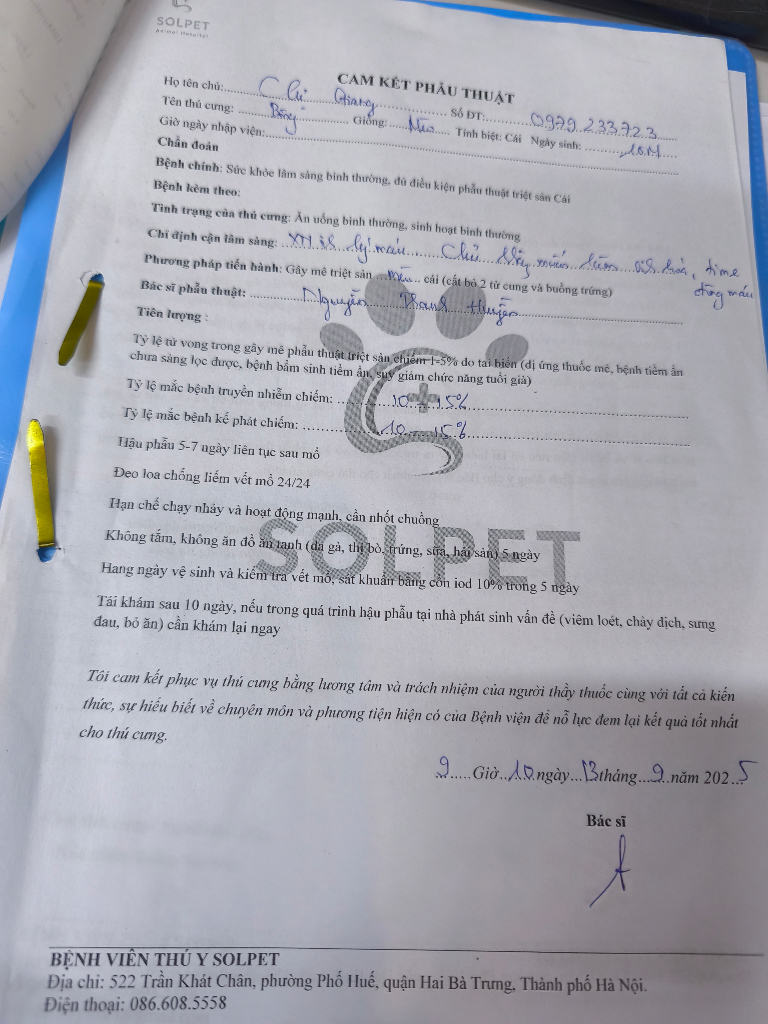 SOLPET
Animal Hospital
CAM KẾT PHẪU THUẬT
Họ tên chủ: Chị Giang Số ĐT: 0979.233.723
Tên thú cưng: Bông Giống: Mèo Tính biệt: Cái Ngày sinh: 10M
Giờ ngày nhập viện:
Chẩn đoán
Bệnh chính: Sức khỏe lâm sàng bình thường, đủ điều kiện phẫu thuật triệt sản Cái
Bệnh kèm theo:
Tình trạng của thú cưng: Ăn uống bình thường, sinh hoạt bình thường
Chỉ định cận lâm sàng: XN lý máu Chủ không muốn làm sinh hoá, time đông máu
Phương pháp tiến hành: Gây mê triệt sản mèo cái (cắt bỏ 2 tử cung và buồng trứng)
Bác sĩ phẫu thuật: Nguyễn Thanh Huyền
Tiên lượng :
Tỷ lệ tử vong trong gây mê phẫu thuật triệt sản chiếm 1-5% do tai biến (dị ứng thuốc mê, bệnh tiềm ẩn
chưa sàng lọc được, bệnh bẩm sinh tiềm ẩn, suy giảm chức năng tuổi già)
Tỷ lệ mắc bệnh truyền nhiễm chiếm: 10 - 15%
Tỷ lệ mắc bệnh kế phát chiếm: 10 - 15%
Hậu phẫu 5-7 ngày liên tục sau mổ
Đeo loa chống liếm vết mổ 24/24
Hạn chế chạy nhảy và hoạt động mạnh, cần nhốt chuồng
Không tắm, không ăn đồ ăn tanh (da gà, thị bò, trứng, sữa, hải sản) 5 ngày
Hang ngày vệ sinh và kiểm tra vết mổ, sát khuẩn bằng cồn iod 10% trong 5 ngày
Tái khám sau 10 ngày, nếu trong quá trình hậu phẫu tại nhà phát sinh vấn đề (viêm loét, chảy dịch, sưng
đau, bỏ ăn) cần khám lại ngay
SOLPET
Tôi cam kết phục vụ thú cưng bằng lương tâm và trách nhiệm của người thầy thuốc cùng với tất cả kiến
thức, sự hiểu biết về chuyên môn và phương tiện hiện có của Bệnh viện để nỗ lực đem lại kết quả tốt nhất
cho thú cưng.
9 Giờ 10 ngày 13 tháng 9 năm 2025
Bác sĩ
BỆNH VIỆN THÚ Y SOLPET
Địa chỉ: 522 Trần Khát Chân, phường Phố Huế, quận Hai Bà Trưng, Thành phố Hà Nội.
Điện thoại: 086.608.5558